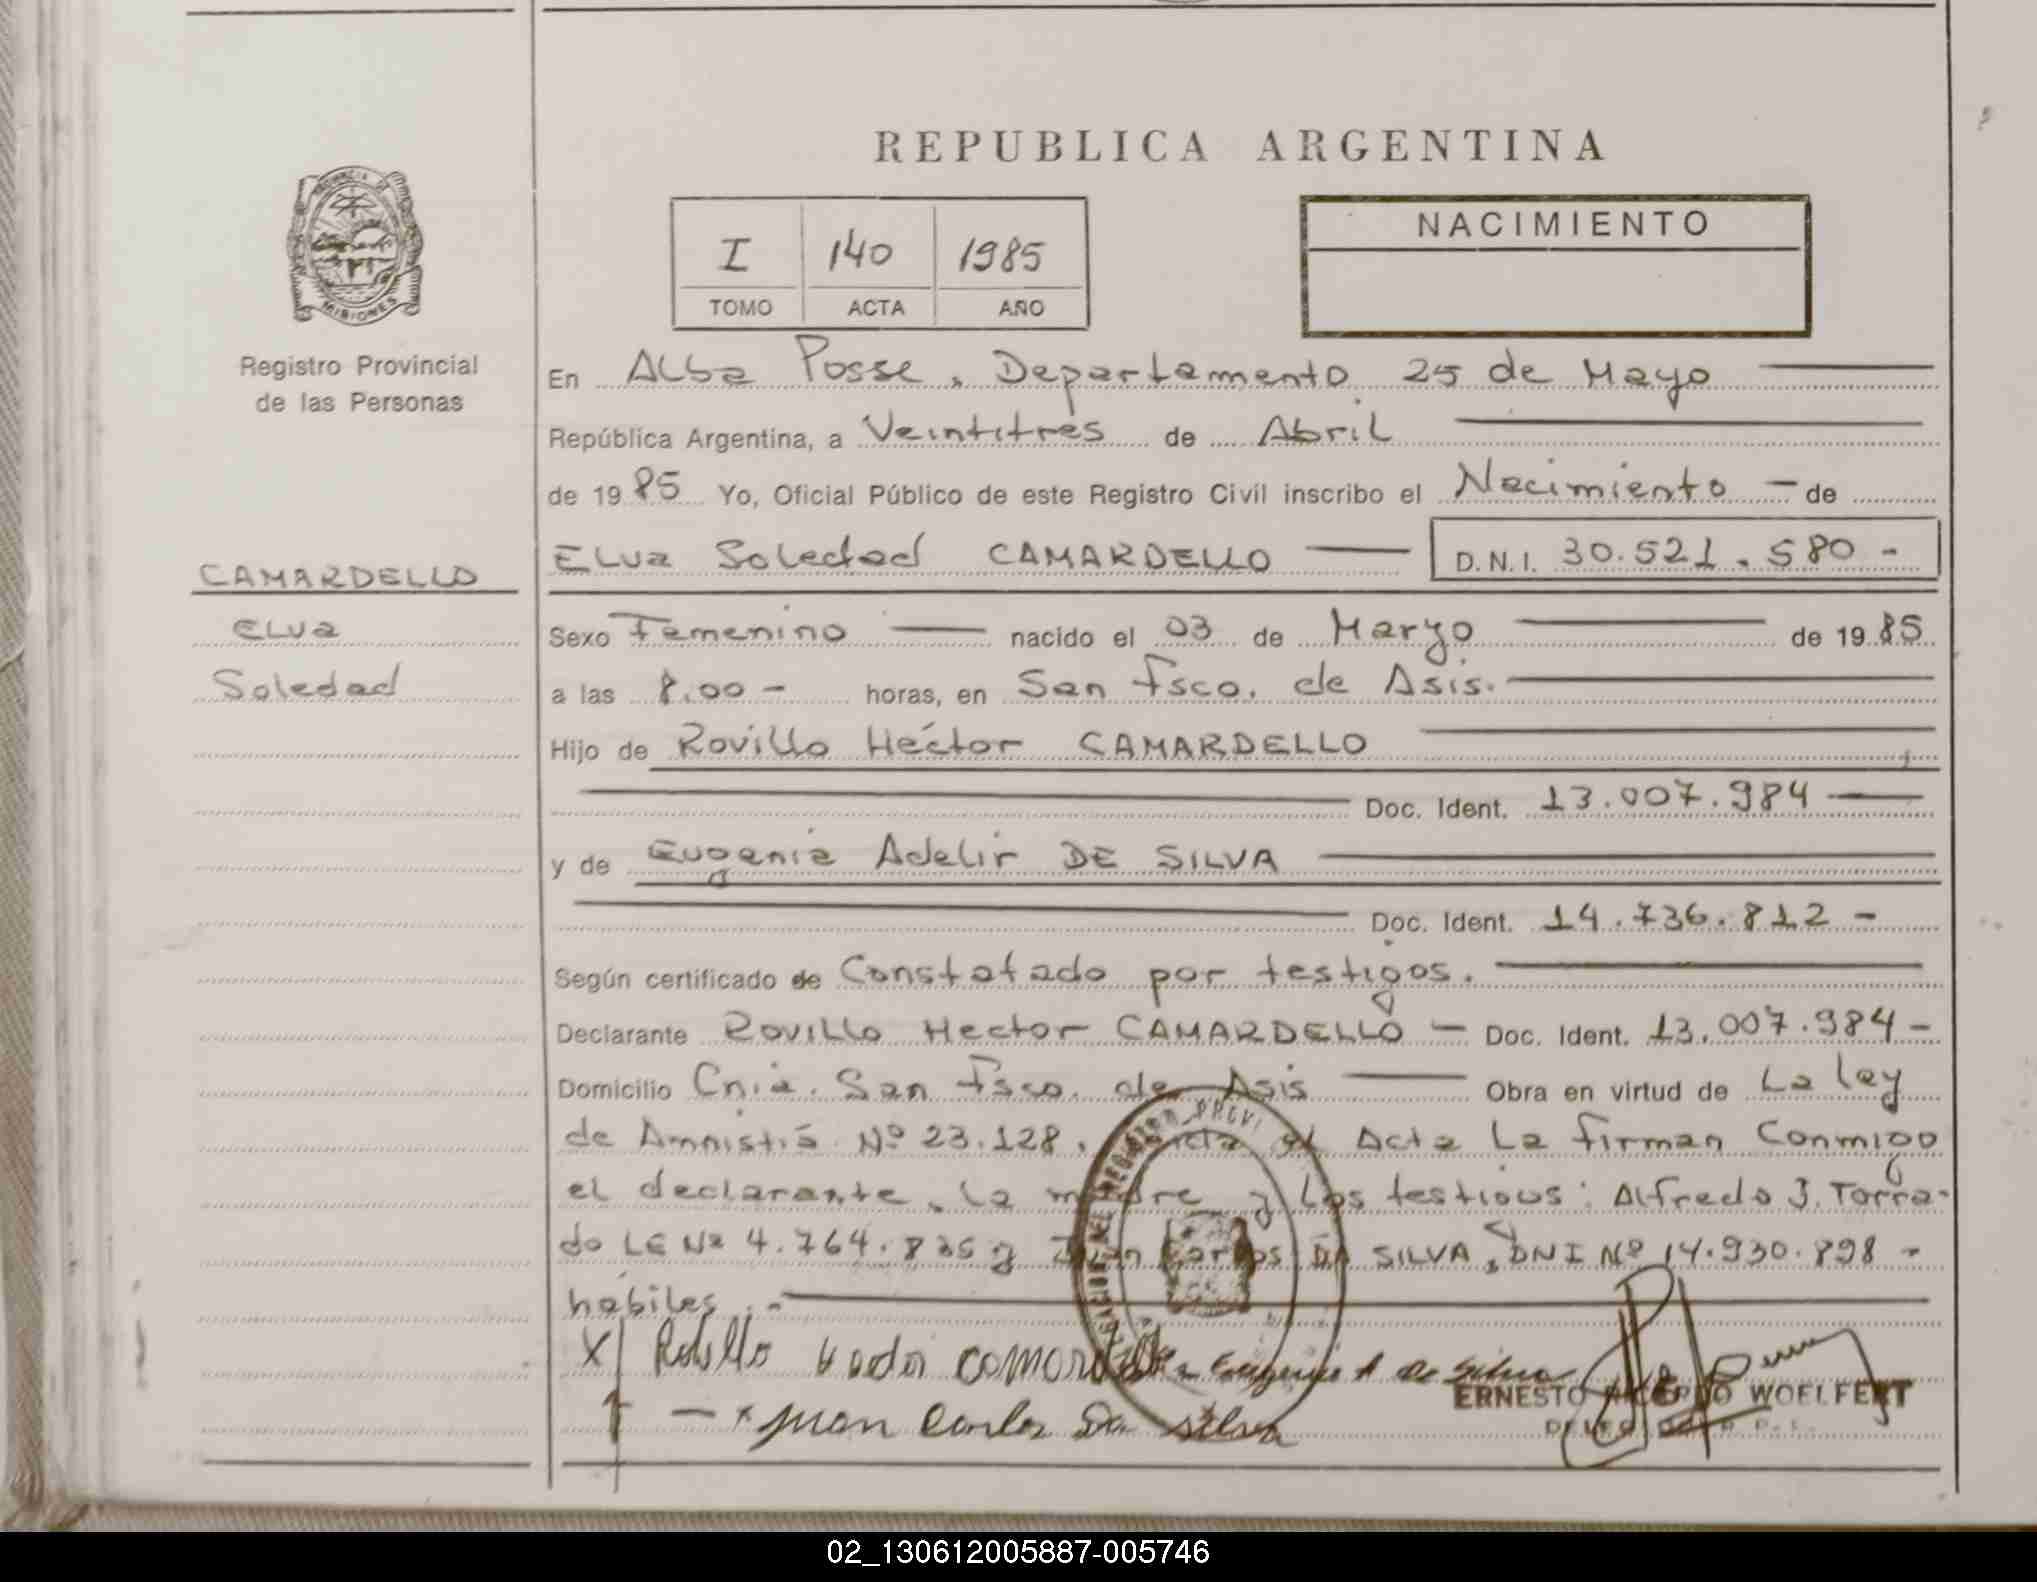 REPUBLICA ARGENTINA
PROVINCIA DE
MISIONES
Registro Provincial
de las Personas
I 140 1985
TOMO ACTA AÑO
NACIMIENTO
En Alba Posse, Departamento 25 de Mayo
República Argentina, a Veintitrés de Abril
de 1985 Yo, Oficial Público de este Registro Civil inscribo el Nacimiento - de
CAMARDELLO
Elva
Soledad
Elva Soledad CAMARDELLO D.N.I. 30.521.580 -
Sexo Femenino nacido el 03 de Marzo de 1985
a las 8.00 - horas, en San Fsco. de Asis.
Hijo de Rovillo Héctor CAMARDELLO
Doc. Ident. 13.007.984
y de Eugenia Adelir DE SILVA
Doc. Ident. 14.736.812 -
Según certificado de Constatado por testigos.
Declarante Rovillo Hector CAMARDELLO - Doc. Ident. 13.007.984 -
Domicilio Cnia. San Fsco. de Asis Obra en virtud de La ley
de Amnistía Nº 23.128. el Acta La firman Conmigo
el declarante, la madre y los testigos: Alfredo J. Torra-
do LE Nº 4.764.835 y Juan Carlos DA SILVA, DNI Nº 14.930.898 -
hábiles.-
X Rovillo camardello Eugenia A De Silva
ERNESTO RICARDO WOELFERT
- x Juan Carlos Da Silva
02_130612005887-005746